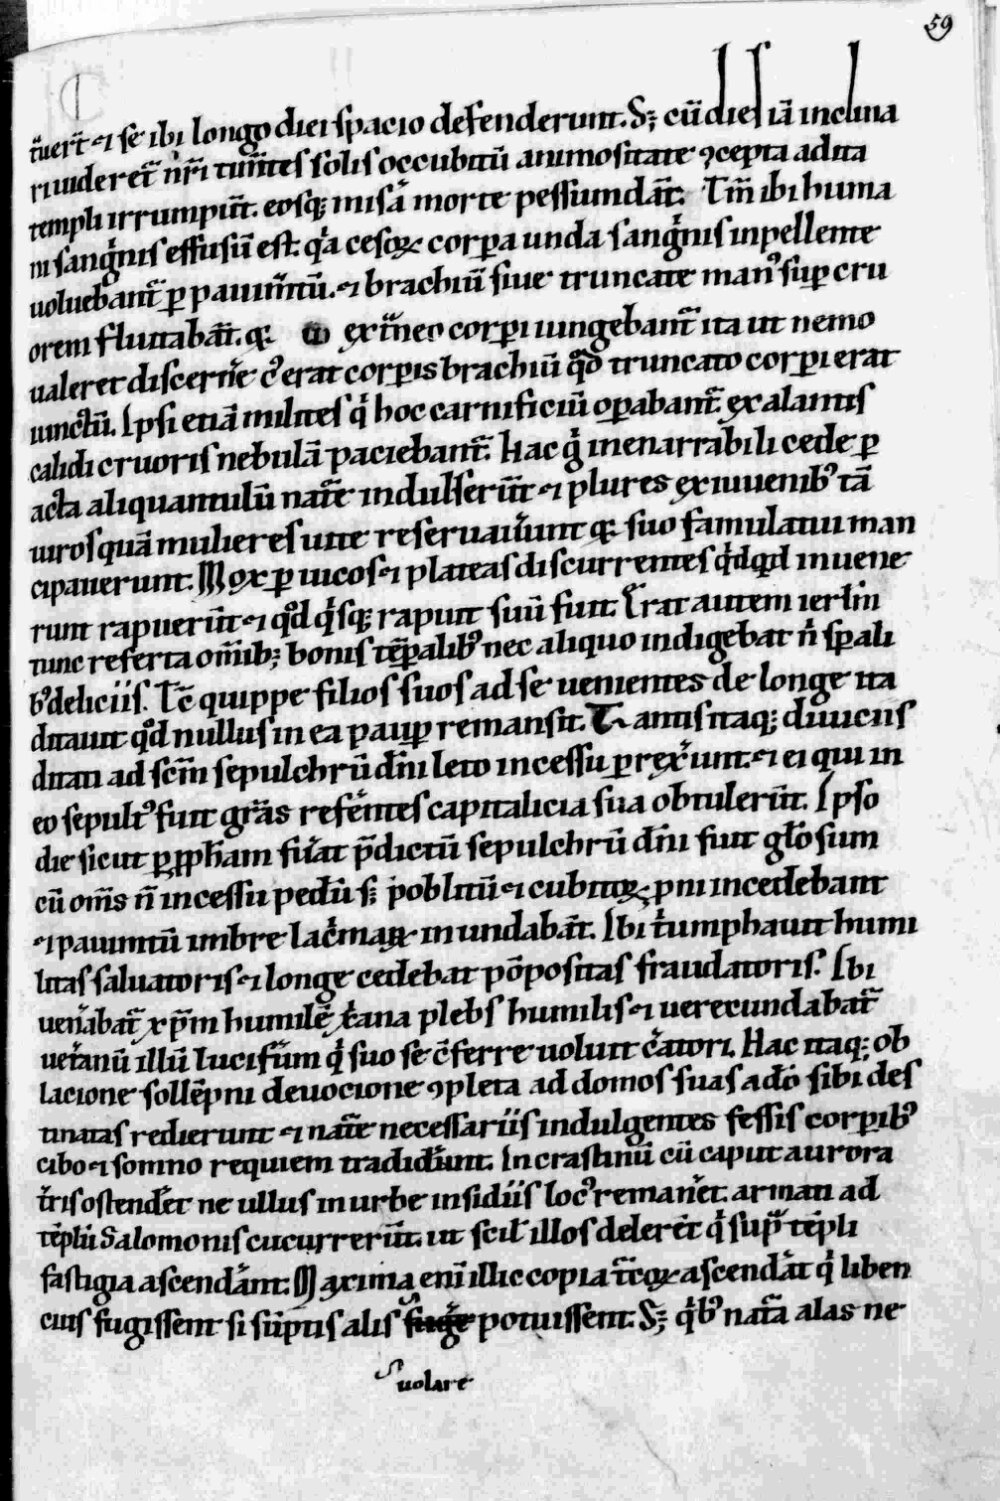 59
tũert̃ ⁊ se ibi longo diei spacio defenderunt. S; cũ dies iã inclina
ri uideret̃ nr̃i tum̃tes solis occubitũ animositate ꝯcepta adita
templi irrumpiũt. eosq; misa morte pessumdãt. Tm̃ ibi huma
ni sangnis effusũ est. qa cesoꝝ corꝑa unda sangnis inpellente
uoluebant̃ ꝑ pauim̃tũ. ⁊ brachiũ siue truncate manꝰ suꝑ cru
orem fluitabãt. q; ext̃neo corꝑi iungebant̃ ita ut nemo
ualeret discerne cꝰ erat corꝑis brachiũ qd truncato corꝑi erat
iunctũ. Ipsi etiã milites q hoc carnificiũ oꝑabant̃. exalantis
calidi cruoris nebulã paciebant̃. Hac g inenarrabili cede ꝑ
acta aliquantulũ nat̃e indulserũt ⁊ plures ex iuuenibꝰ tã
uiros quã mulieres uite reseruauunt q; suo famulatui man
cipauerunt. Mox ꝑ uicos ⁊ plateas discurrentes qdqd inuene
runt rapuerũt ⁊ qd qsq; rapuit suũ fuit. Erat autem ierłm
tunc referta om̃ib; bonis tẽꝑalibꝰ nec aliquo indigebat n̄ sꝑali
bꝰ deliciis. Tc̃ quippe filios suos ad se uenientes de longe ita
ditauit qd nullus in ea pauꝑ remansit. Tantis itaq; diuiciis
ditati ad scm̃ sepulchrũ dñi leto incessu ꝑrexunt. ⁊ ei qui in
eo sepultꝰ fuit grãs refentes capitalicia sua obtulerũt. Ipso
die sicut ꝑ ꝓpħam fuat p̃dictũ sepulchrũ dñi fuit gło sum
cũ oms̃ ñ incessu pedũ s; poblitũ ⁊ cubitoꝝ pni incedebant
⁊ pauimtũ imbre lacmaꝝ inundabãt. Ibi tumphauit humi
litas saluatoris ⁊ longe cedebat põpositas fraudatoris. Ibi
uenabat̃ xp̃m humilẽ xana plebs humilis ⁊ uerecundabat̃
uetanũ illũ lucifũm q suo se c̃ferre uoluit catori. Hac itaq; ob
lacione sollẽpni deuocione ꝯpleta ad domos suas a dõ sibi des
tinatas redierunt ⁊ nat̃e necessariis indulgentes fessis corꝑibꝰ
cibo ⁊ somno requiem tradidunt. In crastinũ cũ caput aurora
tris ostendet ne ullus in urbe insidiis locꝰ remanet. armati ad
tẽplũ Salomonis cucurrerũt. ut scił illos delerẽt q sup tẽpli
fastigia ascendant. Maxima enĩ illic copia tc̃oꝝ ascendat q liben
cius fugissent si sũptis alis fuge potuissent. S; qbꝰ nata alas ne
uolare